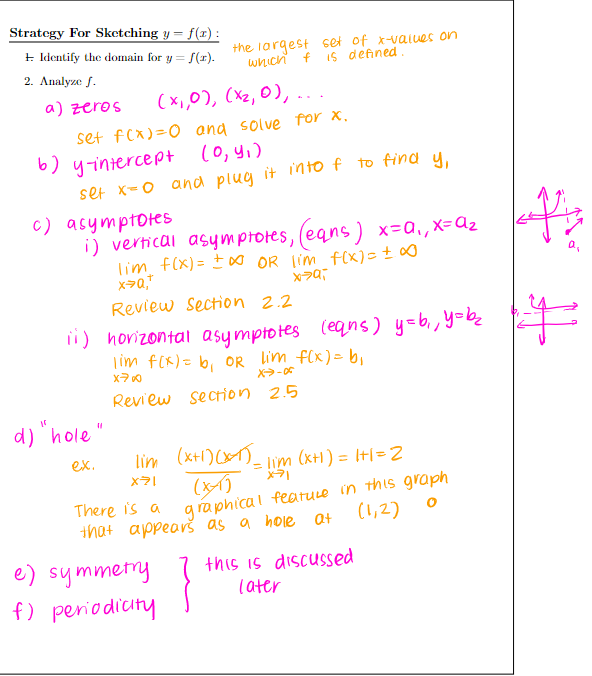 Strategy For Sketching y = f(x) :
1. Identify the domain for y = f(x).
the largest set of x-values on
which f is defined.
2. Analyze f.
a) zeros (x₁,0), (x₂,0), ...
set f(x)=0 and solve for x.
b) y-intercept (0, y₁)
set x=0 and plug it into f to find y₁
c) asymptotes
i) vertical asymptotes, (eqns) x=a₁, x=a₂
lim f(x) = ±∞ OR lim f(x) = ±∞
x→a₁⁺ x→a₁⁻
Review Section 2.2
a₁
ii) horizontal asymptotes (eqns) y=b₁, y=b₂
b₁
lim f(x) = b₁ OR lim f(x) = b₁
x→∞ x→-∞
Review section 2.5
d) "hole"
ex. lim (x+1)(x-1) = lim (x+1) = 1+1 = 2
x→1 (x-1) x→1
There is a graphical feature in this graph
that appears as a hole at (1,2) o
e) symmetry } this is discussed
f) periodicity later